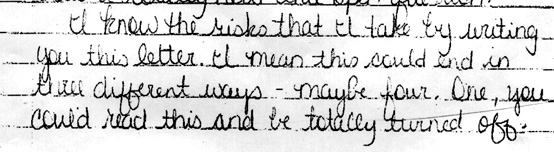 I know the risks that I take by writing
you this letter. I mean this could end in
three different ways - maybe four. One, you
could read this and be totally turned off.